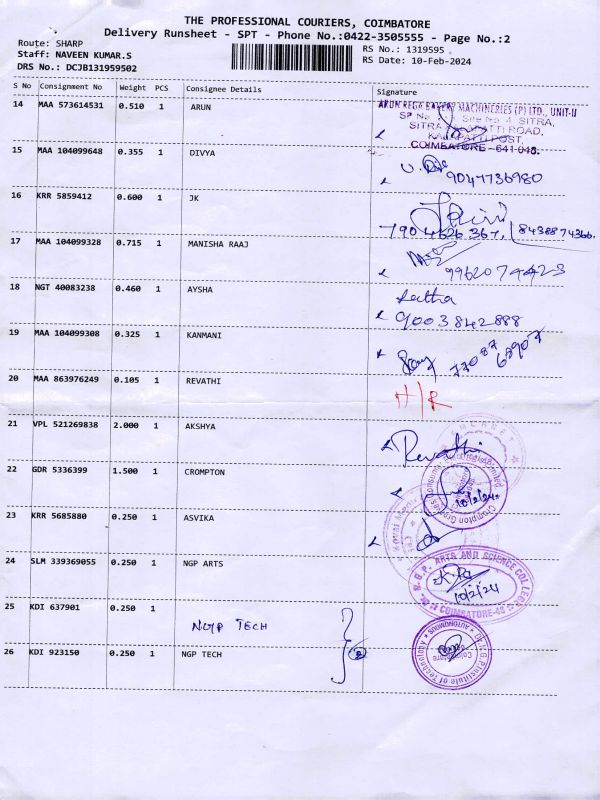 THE PROFESSIONAL COURIERS, COIMBATORE
Delivery Runsheet - SPT - Phone No.:0422-3505555 - Page No.:2
Route: SHARP
RS No.: 1319595
Staff: NAVEEN KUMAR.S
RS Date: 10-Feb-2024
DRS No.: DCJB131959502
S No Consignment No Weight PCS Consignee Details Signature
14 MAA 573614531 0.510 1 ARUN
ARUN REGA BAKERY MACHINERIES (P) LTD., UNIT-II
SF No Site No 4, SITRA,
SITRA ROAD,
KALAPATTI POST,
COIMBATORE - 641 048.
15 MAA 104099648 0.355 1 DIVYA
9047736980
16 KRR 5859412 0.600 1 JK
7904626367, 8438874366.
17 MAA 104099328 0.715 1 MANISHA RAAJ
9962074423
18 NGT 40083238 0.460 1 AYSHA
Latha
9003842888
19 MAA 104099308 0.325 1 KANMANI
20 MAA 863976249 0.105 1 REVATHI
H/R
21 VPL 521269838 2.000 1 AKSHYA
Revathi
22 GDR 5336399 1.500 1 CROMPTON
Crompton Greaves Consumer Electricals Limited
10/2/24
23 KRR 5685880 0.250 1 ASVIKA
24 SLM 339369055 0.250 1 NGP ARTS
Dr. N.G.P. ARTS AND SCIENCE COLLEGE
10/2/24
COIMBATORE-48
25 KDI 637901 0.250 1
NGP TECH
26 KDI 923150 0.250 1 NGP TECH
2
Dr.N.G.P.Institute of Technology
AUTONOMOUS
Coimbatore